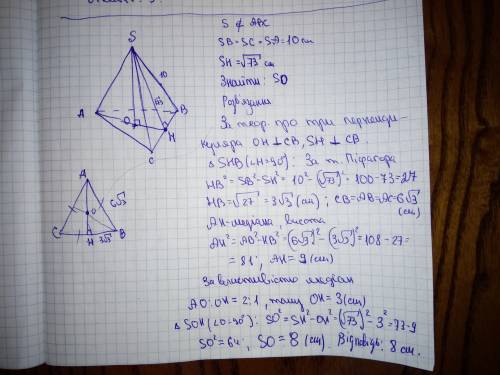 S ∉ ABC
SB=SC=SA=10 см
SH=√73 см
Знайти: SO
Розв'язання
За теор. про три перпенди-
куляра OH⊥CB, SH⊥CB.
△SHB(∠H=90°): За т. Піфагора
HB²=SB²-SH²=10²-(√73)²=100-73=27
HB=√27=3√3(см); CB=AB=AC=6√3
(см)
AH-медіана, висота
AH²=AB²-HB²=(6√3)²-(3√3)²=108-27=
=81; AH=9(см)
За властивістю медіан
AO:OH=2:1, тому OH=3(см)
△SOH(∠O=90°): SO²=SH²-OH²=(√73)²-3²=73-9
SO²=64; SO=8(см). Відповідь: 8 см.
S
10
√73
A
B
O
H
C
A
6√3
O
C
H
3√3
B